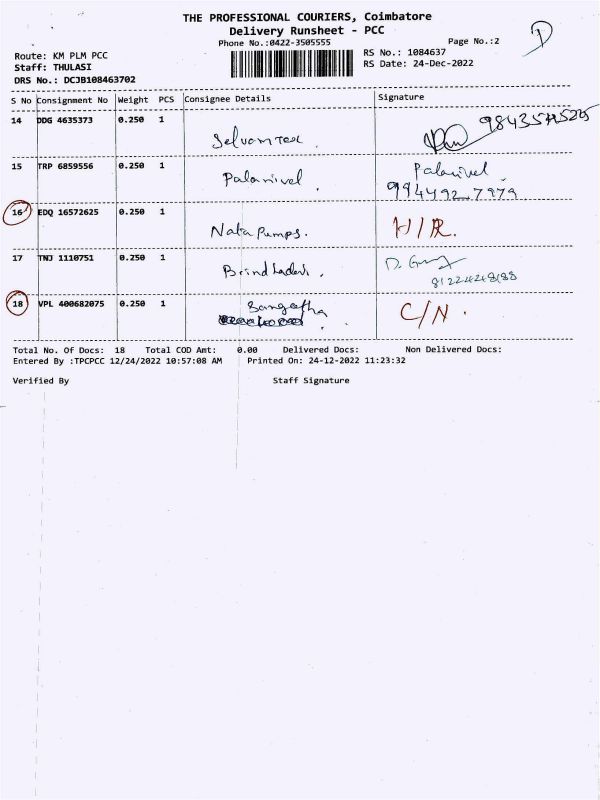 THE PROFESSIONAL COURIERS, Coimbatore
Delivery Runsheet - PCC
Phone No.:0422-3505555
Page No.:2
Route: KM PLM PCC
RS No.: 1084637
Staff: THULASI
RS Date: 24-Dec-2022
DRS No.: DCJB108463702
S No Consignment No Weight PCS Consignee Details Signature
14 DDG 4635373 0.250 1
Selvam Tex.
15 TRP 6859556 0.250 1 Palanivel
Palanivel. 994492 7979
16 EDQ 16572625 0.250 1
Nata Pumps. H/R.
17 TNJ 1110751 0.250 1
Brindhadevi. 8122424888
18 VPL 400682075 0.250 1 Sangetha C/N.
Total No. Of Docs: 18 Total COD Amt: 0.00 Delivered Docs: Non Delivered Docs:
Entered By :TPCPCC 12/24/2022 10:57:08 AM Printed On: 24-12-2022 11:23:32
Verified By Staff Signature